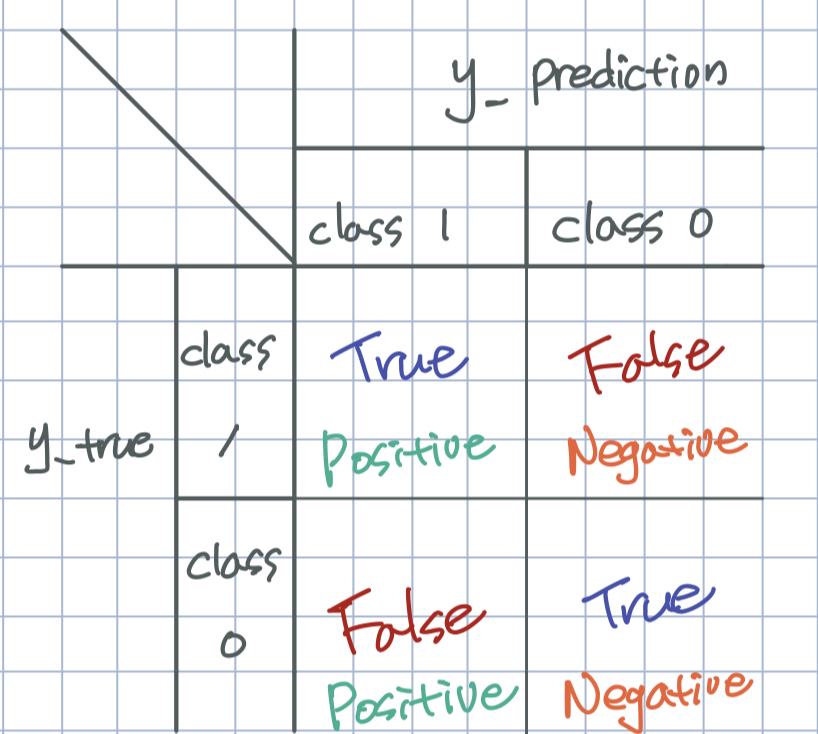 y_ prediction
class 1
class 0
class
1
y_true
True
Positive
False
Negative
class
0
False
Positive
True
Negative